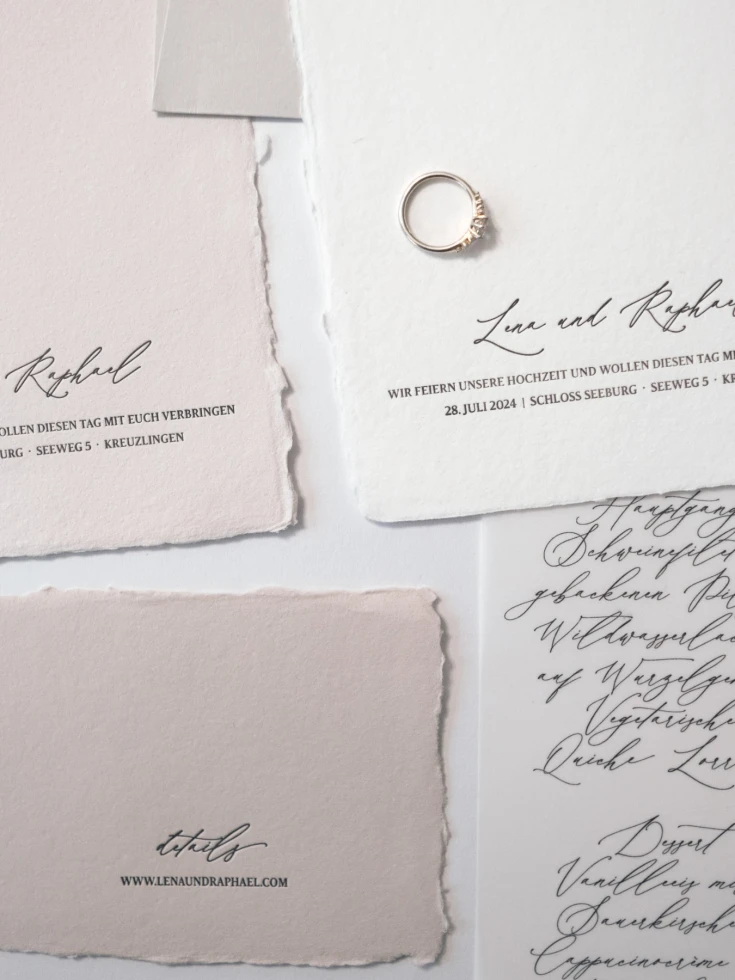 Raphael
OLLEN DIESEN TAG MIT EUCH VERBRINGEN
URG · SEEWEG 5 · KREUZLINGEN
Lena und Raphae
WIR FEIERN UNSERE HOCHZEIT UND WOLLEN DIESEN TAG MI
28. JULI 2024 | SCHLOSS SEEBURG · SEEWEG 5 · KR
details
WWW.LENAUNDRAPHAEL.COM
Hauptgang
Schweinefilet
gebackenen Pil
Wildwasserlac
auf Wurzelgem
Vegetarische
Quiche Lorr
Dessert
Vanilleeis mi
Sauerkirsche
Cappucinocrème